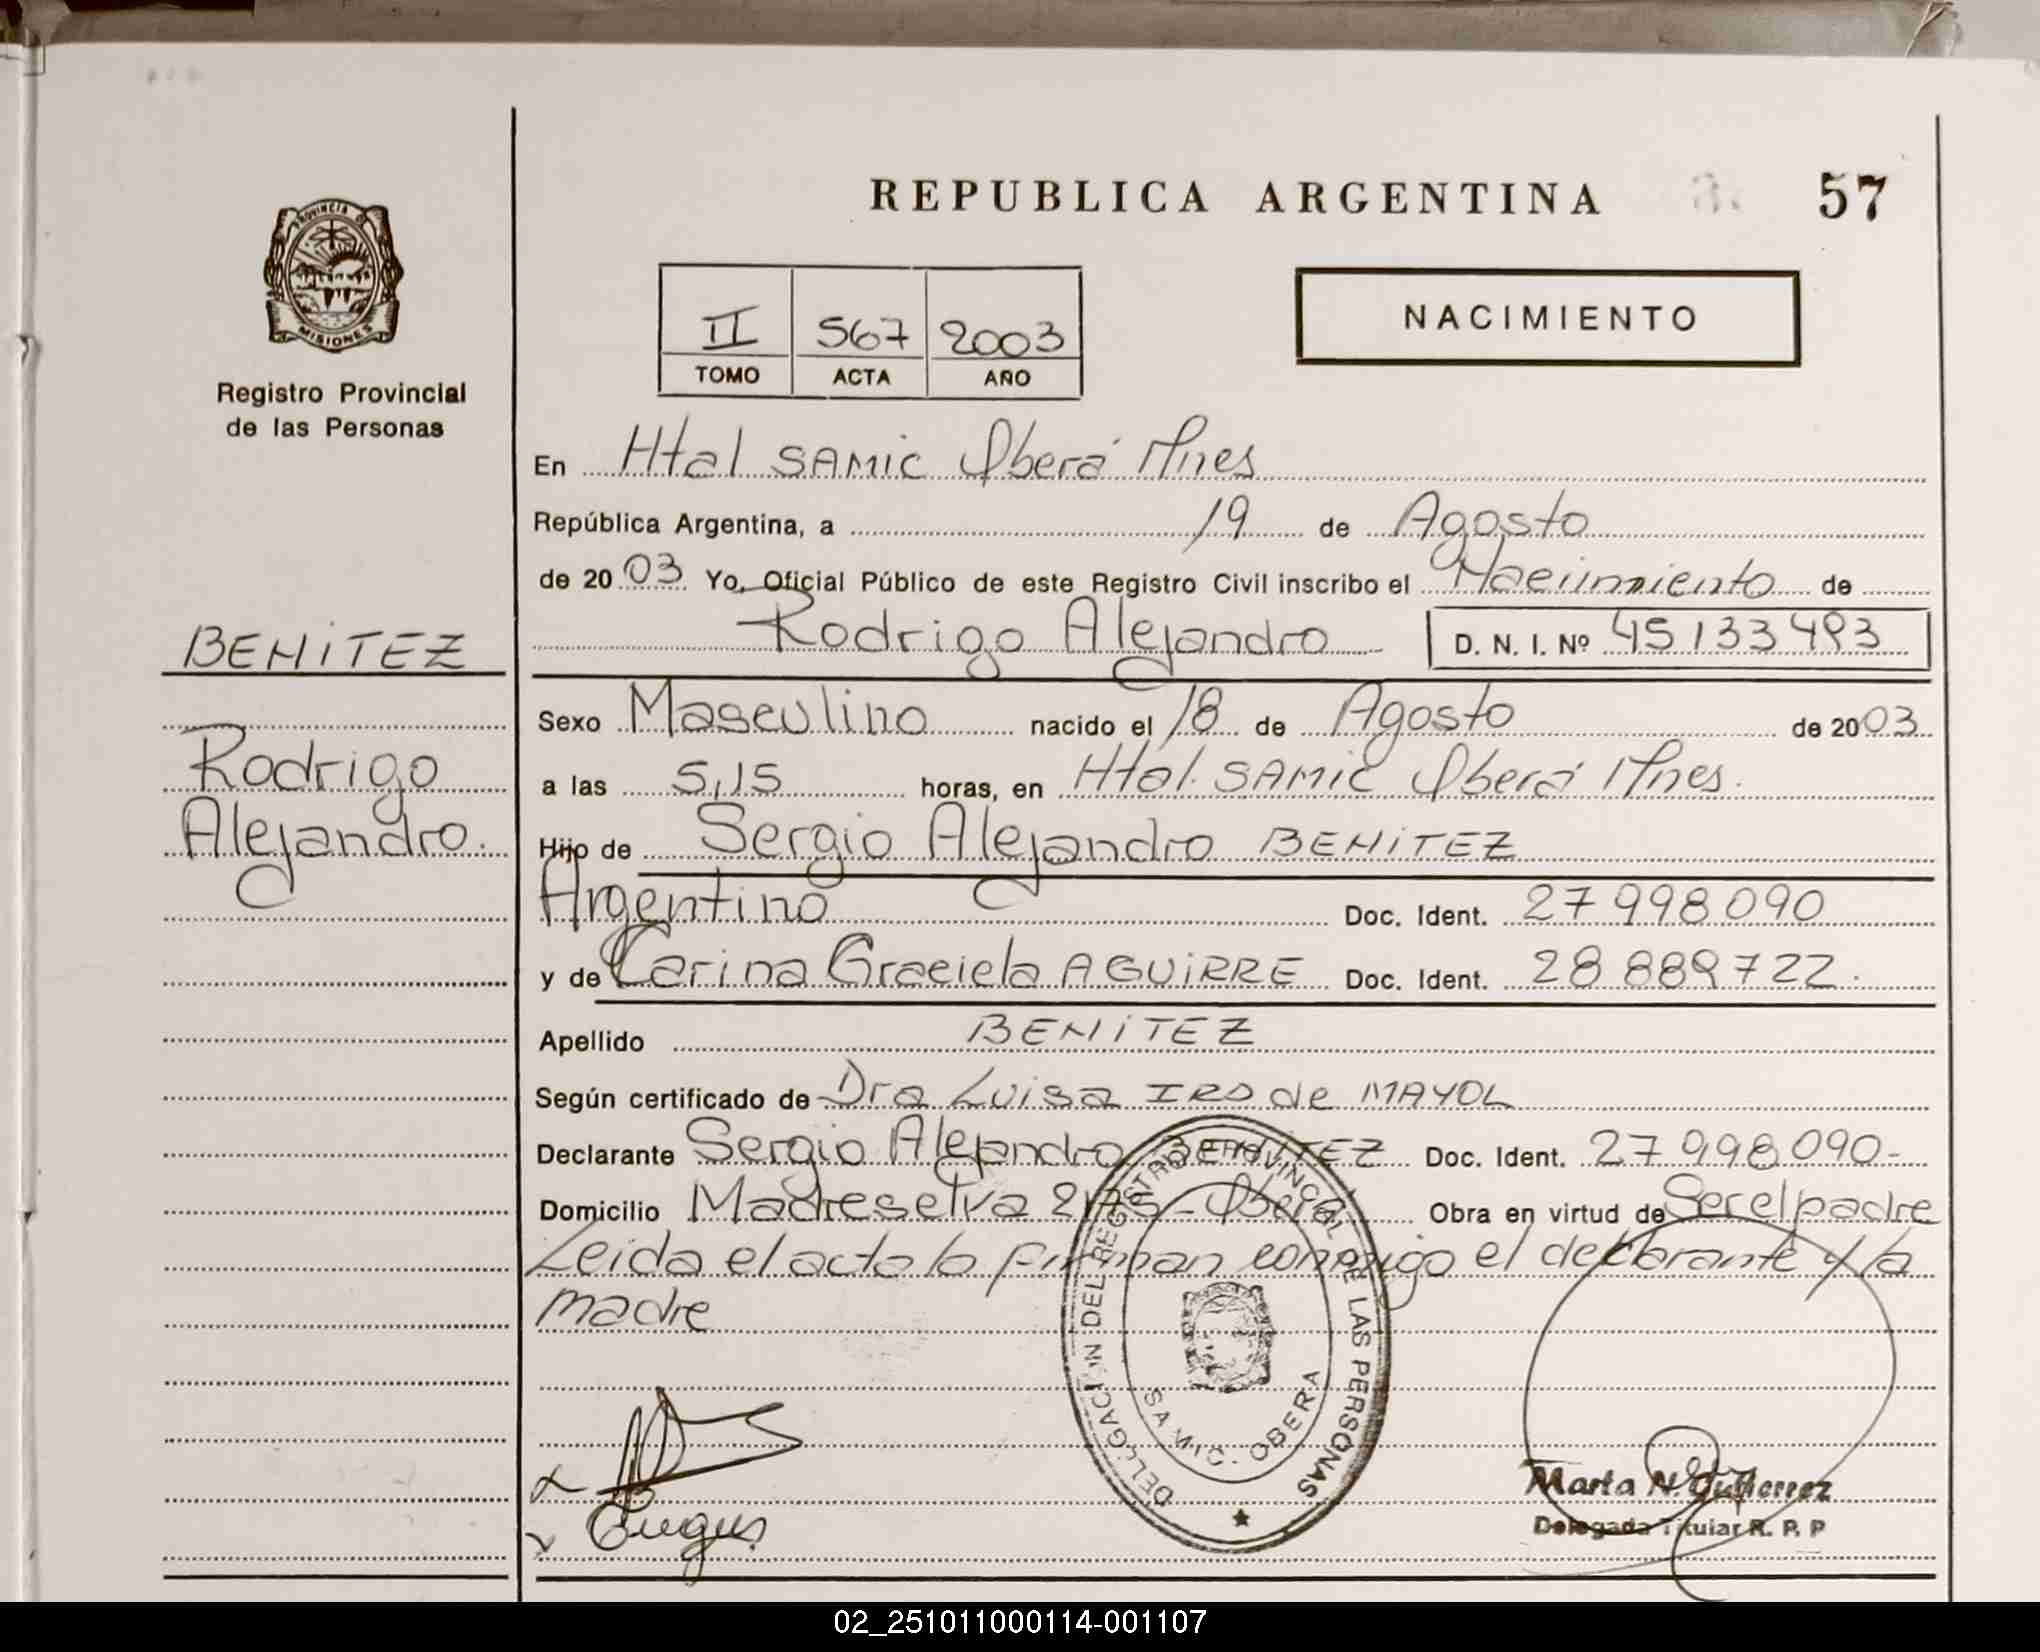 REPUBLICA ARGENTINA
57
PROVINCIA DE
MISIONES
Registro Provincial
de las Personas
II 567 2003
TOMO ACTA AÑO
NACIMIENTO
En Htal SAMIC Oberá Mnes
República Argentina, a 19 de Agosto
de 2003 Yo, Oficial Público de este Registro Civil inscribo el Nacimiento de
Rodrigo Alejandro D. N. I. Nº 45133493
BENITEZ
Rodrigo
Alejandro.
Sexo Masculino nacido el 18 de Agosto de 2003
a las 5,15 horas, en Htal. SAMIC Oberá Mnes.
Hijo de Sergio Alejandro BENITEZ
Argentino Doc. Ident. 27998090
y de Carina Graciela AGUIRRE Doc. Ident. 28889722.
Apellido BENITEZ
Según certificado de Dra Luisa IRO de MAYOL
Declarante Sergio Alejandro BENITEZ Doc. Ident. 27998090-
Domicilio Madreselva - Oberá Obra en virtud de Ser el padre
Leida el acta la firman conmigo el declarante y la
madre
DELEGACION DEL REGISTRO PROVINCIAL DE LAS PERSONAS
SAMIC - OBERA
Marta N. Gutierrez
Delegada Titular R. P. P
02_251011000114-001107